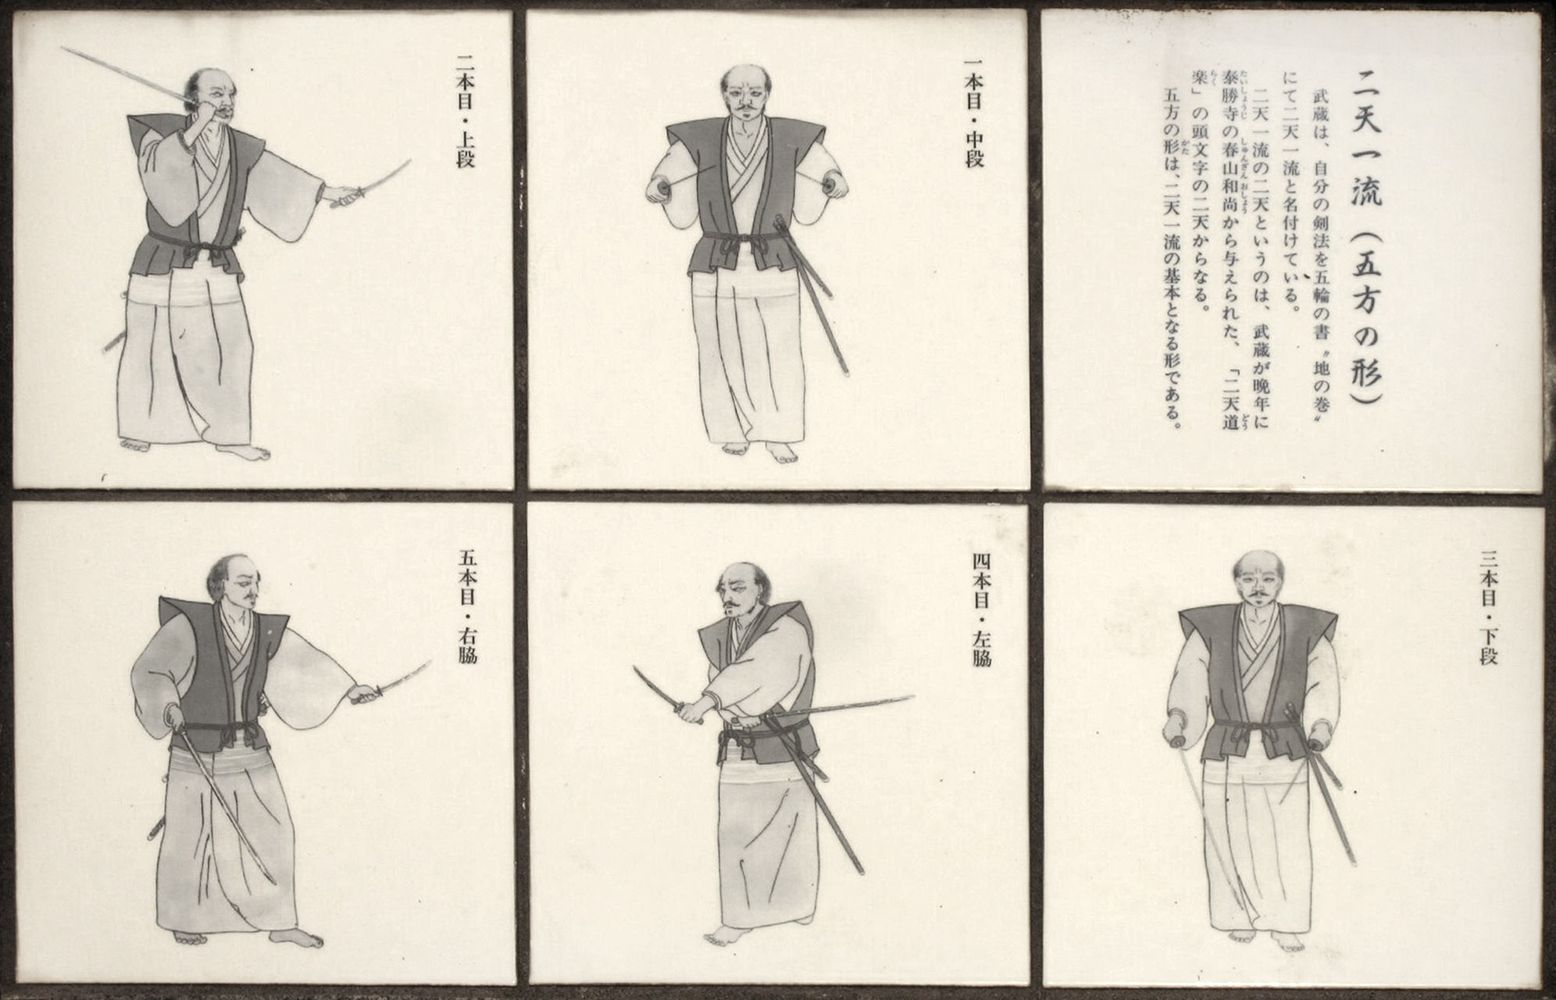 二天一流（五方の形）
武蔵は、自分の剣法を五輪の書〝地の巻〟
にて二天一流と名付けている。
二天一流の二天というのは、武蔵が晩年に
泰勝寺の春山和尚から与えられた、「二天道
たいしょうじ しゅんざん おしょう どう
楽」の頭文字の二天からなる。
らく
五方の形は、二天一流の基本となる形である。
かた
一本目・中段
二本目・上段
三本目・下段
四本目・左脇
五本目・右脇